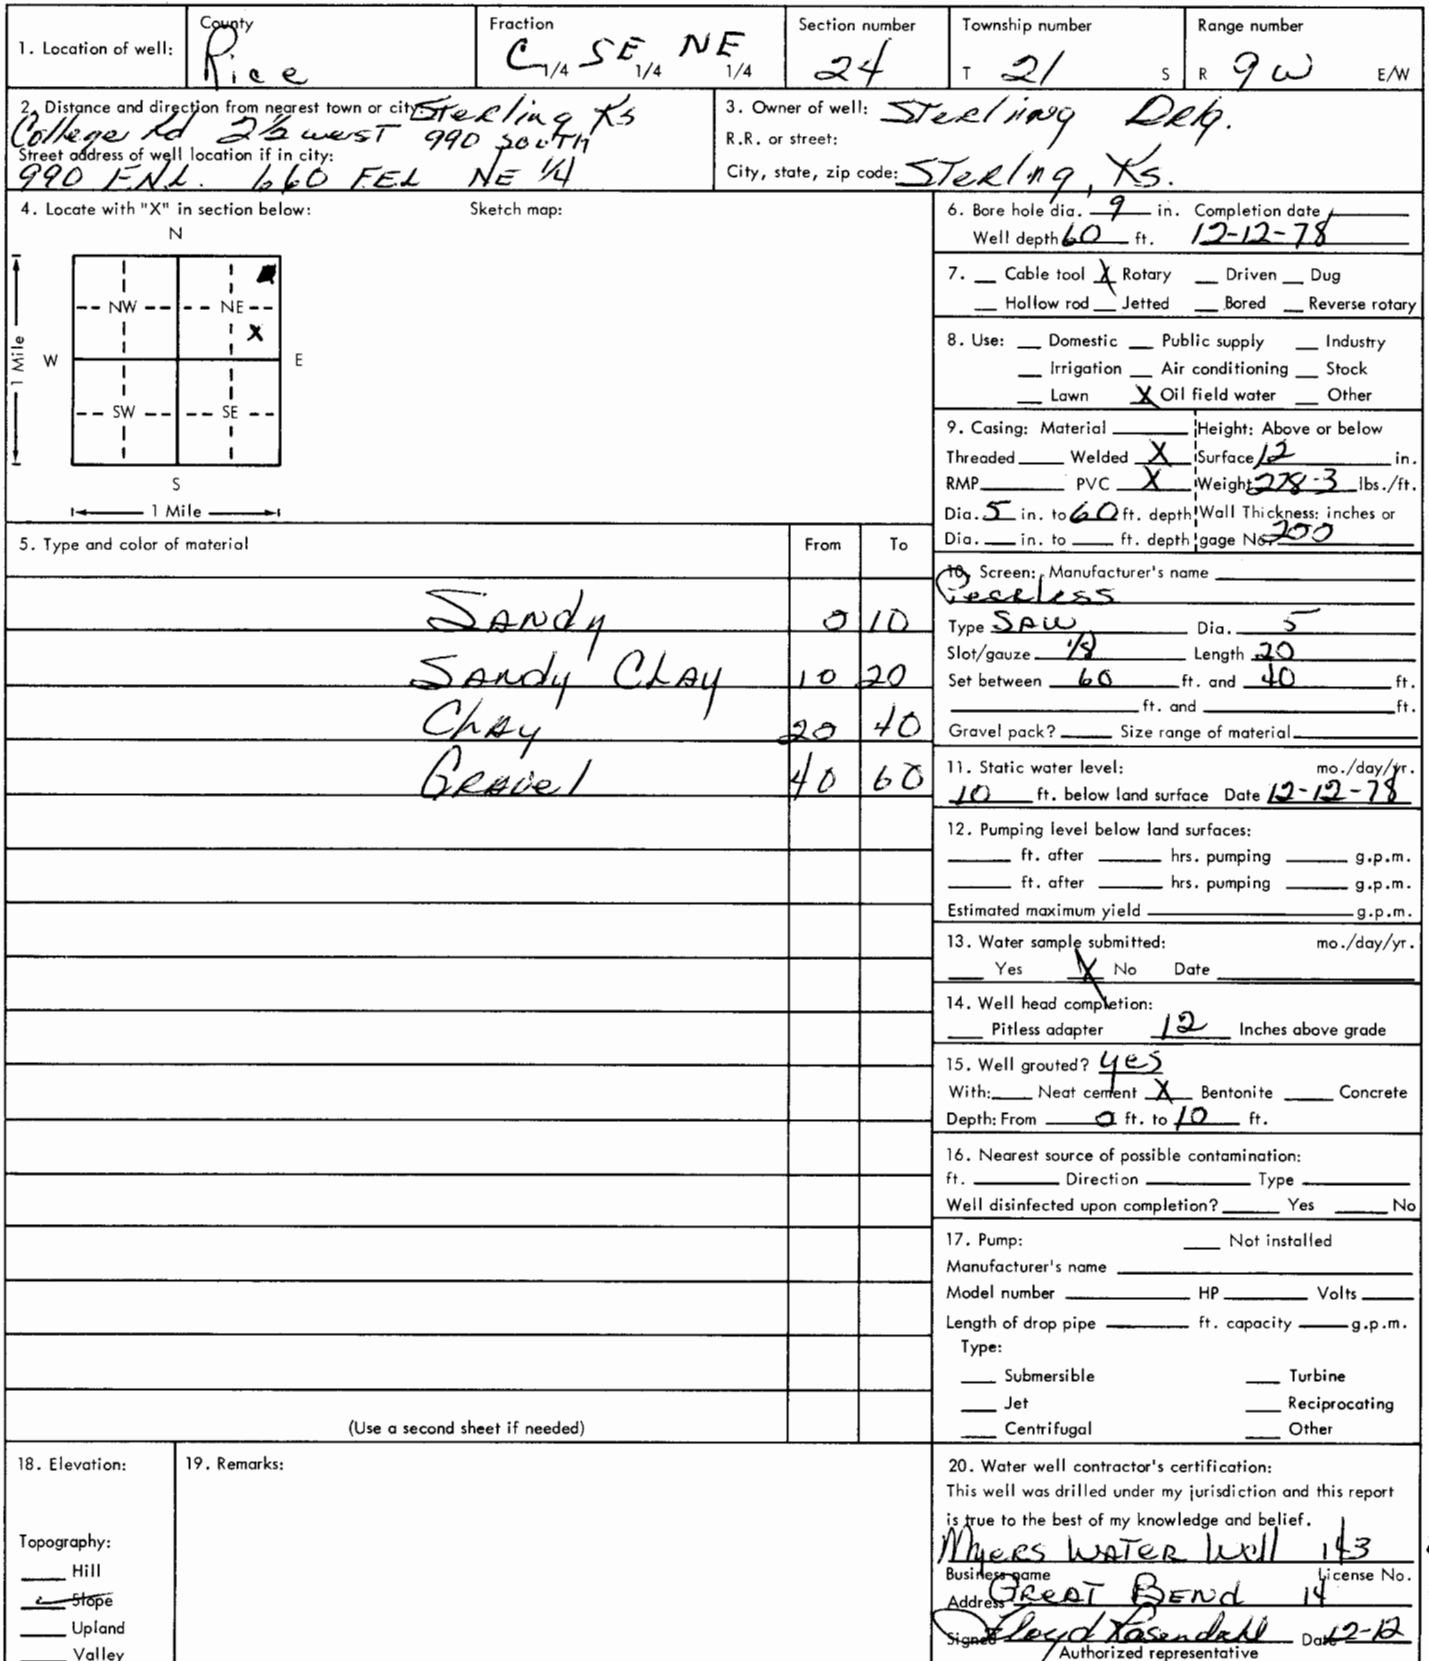 1. Location of well: County Rice Fraction C 1/4 SE 1/4 NE 1/4 Section number 24 Township number T 21 S Range number R 9 W E/W
2. Distance and direction from nearest town or city: Sterling Ks
College Rd 2½ west 990 south
Street address of well location if in city:
990 FNL 660 FEL NE ¼
3. Owner of well: Sterling Drlg.
R.R. or street:
City, state, zip code: Sterling, Ks.
4. Locate with "X" in section below: Sketch map:
N
NW NE
X
W E
1 Mile
SW SE
S
1 Mile
5. Type and color of material From To
Sandy 0 10
Sandy Clay 10 20
Clay 20 40
Gravel 40 60
(Use a second sheet if needed)
6. Bore hole dia. 9 in. Completion date
Well depth 60 ft. 12-12-78
7. __ Cable tool X Rotary __ Driven __ Dug
__ Hollow rod __ Jetted __ Bored __ Reverse rotary
8. Use: __ Domestic __ Public supply __ Industry
__ Irrigation __ Air conditioning __ Stock
__ Lawn X Oil field water __ Other
9. Casing: Material ____ Height: Above or below
Threaded ____ Welded X Surface 12 in.
RMP ____ PVC X Weight 278-3 lbs./ft.
Dia. 5 in. to 60 ft. depth Wall Thickness: inches or
Dia. __ in. to __ ft. depth gage No. 200
10. Screen: Manufacturer's name
Peerless
Type SAW Dia. 5
Slot/gauze 1/8 Length 20
Set between 60 ft. and 40 ft.
____ ft. and ____ ft.
Gravel pack? ____ Size range of material ____
11. Static water level: mo./day/yr.
10 ft. below land surface Date 12-12-78
12. Pumping level below land surfaces:
____ ft. after ____ hrs. pumping ____ g.p.m.
____ ft. after ____ hrs. pumping ____ g.p.m.
Estimated maximum yield ____ g.p.m.
13. Water sample submitted: mo./day/yr.
__ Yes X No Date ____
14. Well head completion:
__ Pitless adapter 12 Inches above grade
15. Well grouted? yes
With: __ Neat cement X Bentonite __ Concrete
Depth: From 0 ft. to 10 ft.
16. Nearest source of possible contamination:
ft. ____ Direction ____ Type ____
Well disinfected upon completion? __ Yes __ No
17. Pump: __ Not installed
Manufacturer's name ____
Model number ____ HP ____ Volts ____
Length of drop pipe ____ ft. capacity ____ g.p.m.
Type:
__ Submersible __ Turbine
__ Jet __ Reciprocating
__ Centrifugal __ Other
18. Elevation:
Topography:
__ Hill
__ Slope
__ Upland
__ Valley
19. Remarks:
20. Water well contractor's certification:
This well was drilled under my jurisdiction and this report
is true to the best of my knowledge and belief.
Myers Water Well 143
Business name License No.
Address Great Bend 14
Signed Floyd Rosendahl Date 12-12
Authorized representative